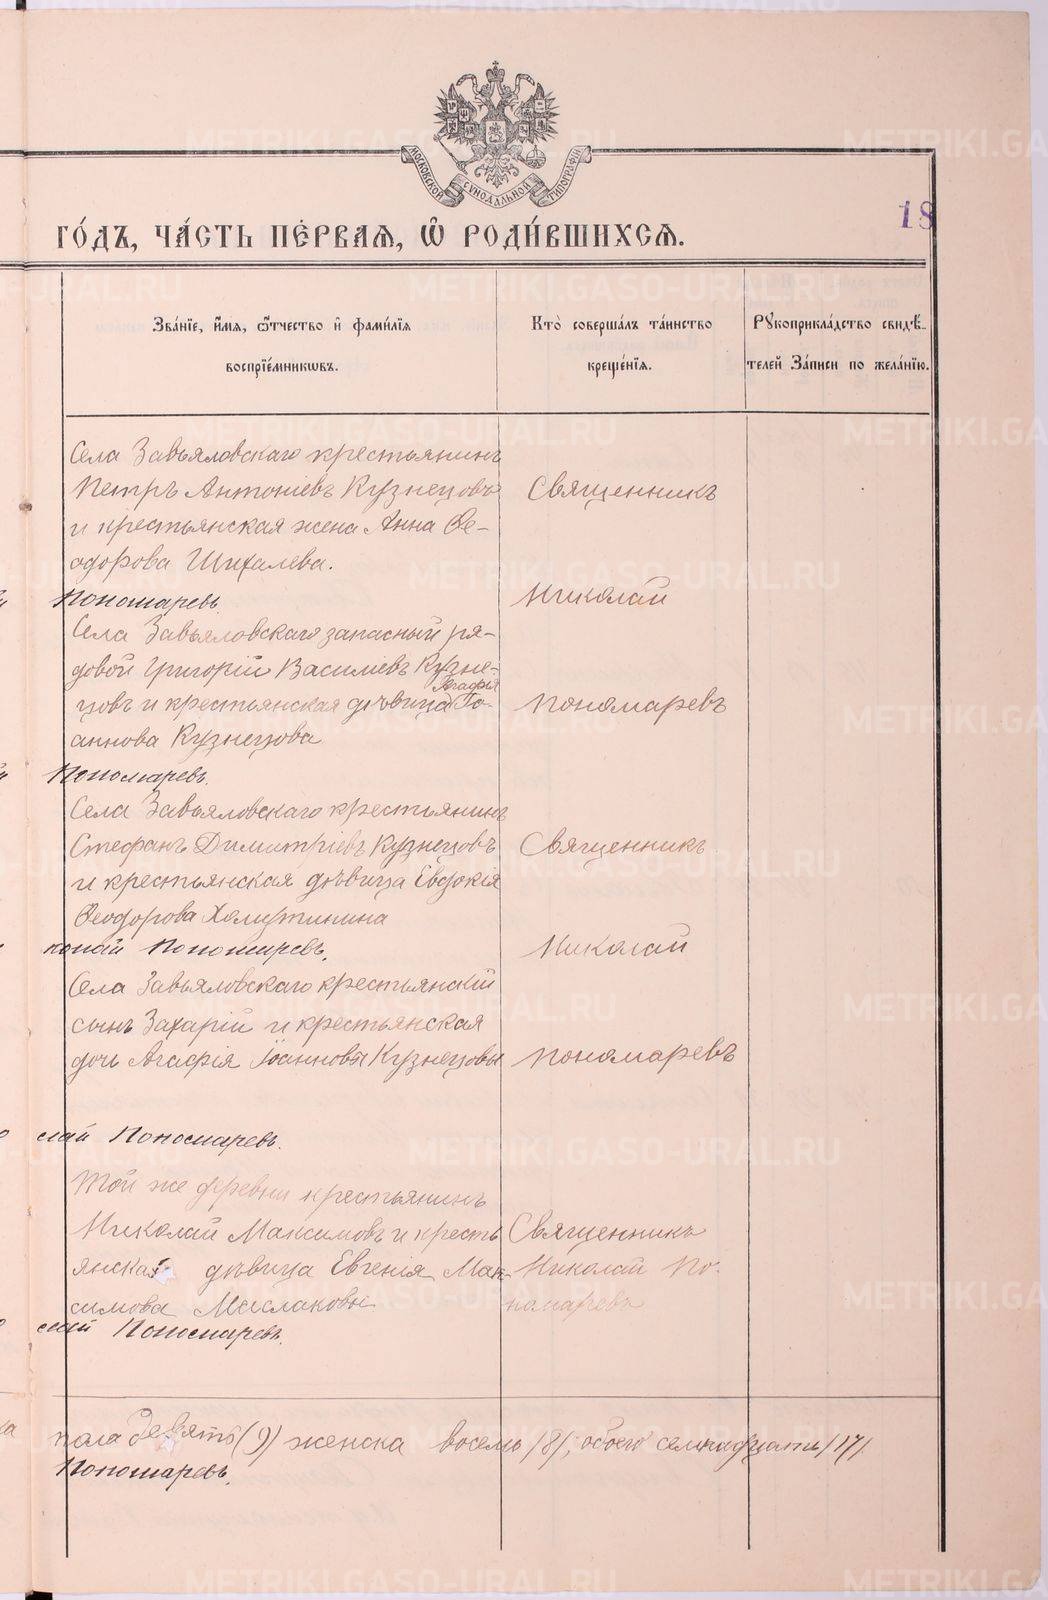 МОСКОВСКОЙ СѴНОДАЛЬНОЙ ТИПОГРАФІИ
18
ГО́ДЪ, ЧА́СТЬ ПЕ́РВАѦ, Ѡ҆ РОДИ́ВШИХСѦ.
Зва́нїе, и҆́мѧ, ѻ҆́тчество и҆ фами́лїѧ
воспрїе́мникѡвъ.
Кто̀ соверша́лъ та́инство
креще́нїѧ.
Рꙋкоприкла́дство свидѣ́-
телей За́писи по жела́нїю.
Села Завьяловскаго крестьянинъ
Петръ Антоніевъ Кузнецовъ
и крестьянская жена Анна Ѳе-
одорова Шихалева.
Священникъ
Пономаревъ
Николай
Села Завьяловскаго запасный ря-
довой Григорій Василіевъ Кузне-
Агафія
цовъ и крестьянская дѣвица Іо-
аннова Кузнецова
Пономаревъ
Пономаревъ.
Села Завьяловскаго крестьянинъ
Стефанъ Димитріевъ Кузнецовъ
и крестьянская дѣвица Евдокія
Ѳеодорова
Священникъ
колай Пономаревъ.
Николай
Села Завьяловскаго крестьянскій
сынъ Захарій и крестьянская
дочь Агафія Іоанновы Кузнецовы
Пономаревъ
лай Пономаревъ.
Той же деревни крестьянинъ
Николай Максимовъ и кресть
янская дѣвица Евгенія Мак-
симова Маслаковы
Священникъ
Николай По-
номаревъ
лай Пономаревъ.
пола девять (9) женска восемь /8/, обоего семнадцать /17/.
Пономаревъ.
METRIKI.GASO-URAL.RU